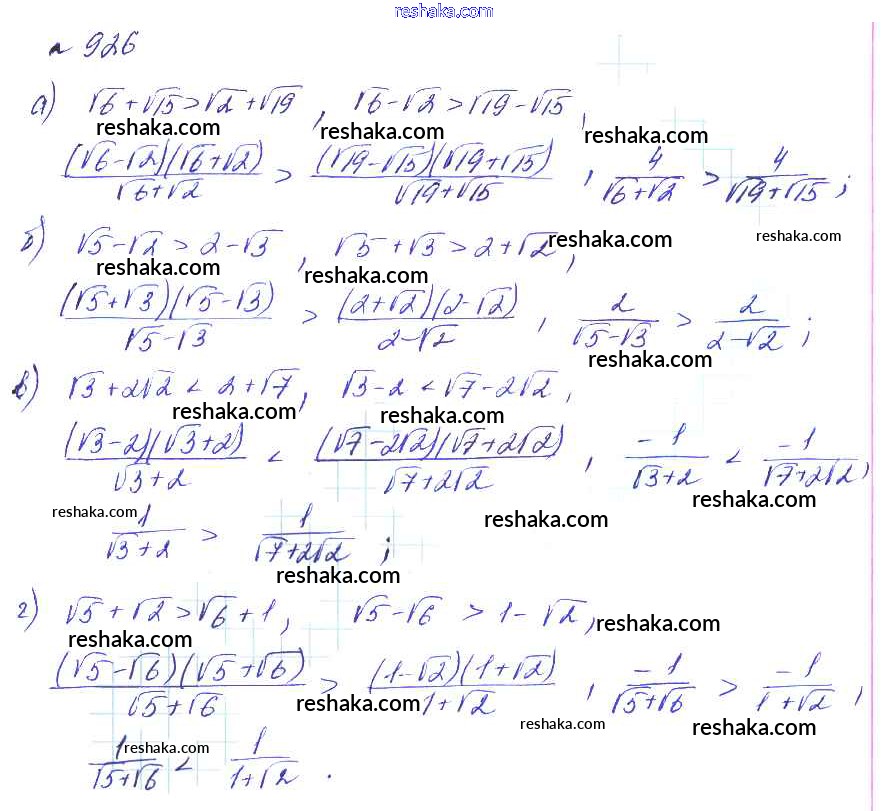 reshaka.com
№ 926
а) √6 + √15 > √2 + √19 , √6 - √2 > √19 - √15 ,
reshaka.com reshaka.com reshaka.com
(√6-√2)(√6+√2)/(√6+√2) > (√19-√15)(√19+√15)/(√19+√15) , 4/(√6+√2) > 4/(√19+√15) ;
б) √5 - √2 > 2 - √3 , √5 + √3 > 2 + √2 ,
reshaka.com reshaka.com reshaka.com reshaka.com
(√5+√3)(√5-√3)/(√5-√3) > (2+√2)(2-√2)/(2-√2) , 2/(√5-√3) > 2/(2-√2) ;
reshaka.com
в) √3 + 2√2 < 2 + √7 , √3 - 2 < √7 - 2√2 ,
reshaka.com reshaka.com
(√3-2)(√3+2)/(√3+2) < (√7-2√2)(√7+2√2)/(√7+2√2) , -1/(√3+2) < -1/(√7+2√2) ,
reshaka.com reshaka.com reshaka.com
1/(√3+2) > 1/(√7+2√2) ;
reshaka.com
г) √5 + √2 > √6 + 1 , √5 - √6 > 1 - √2 ,
reshaka.com reshaka.com
(√5-√6)(√5+√6)/(√5+√6) > (1-√2)(1+√2)/(1+√2) , -1/(√5+√6) > -1/(1+√2) ,
reshaka.com reshaka.com reshaka.com
1/(√5+√6) < 1/(1+√2) .
reshaka.com